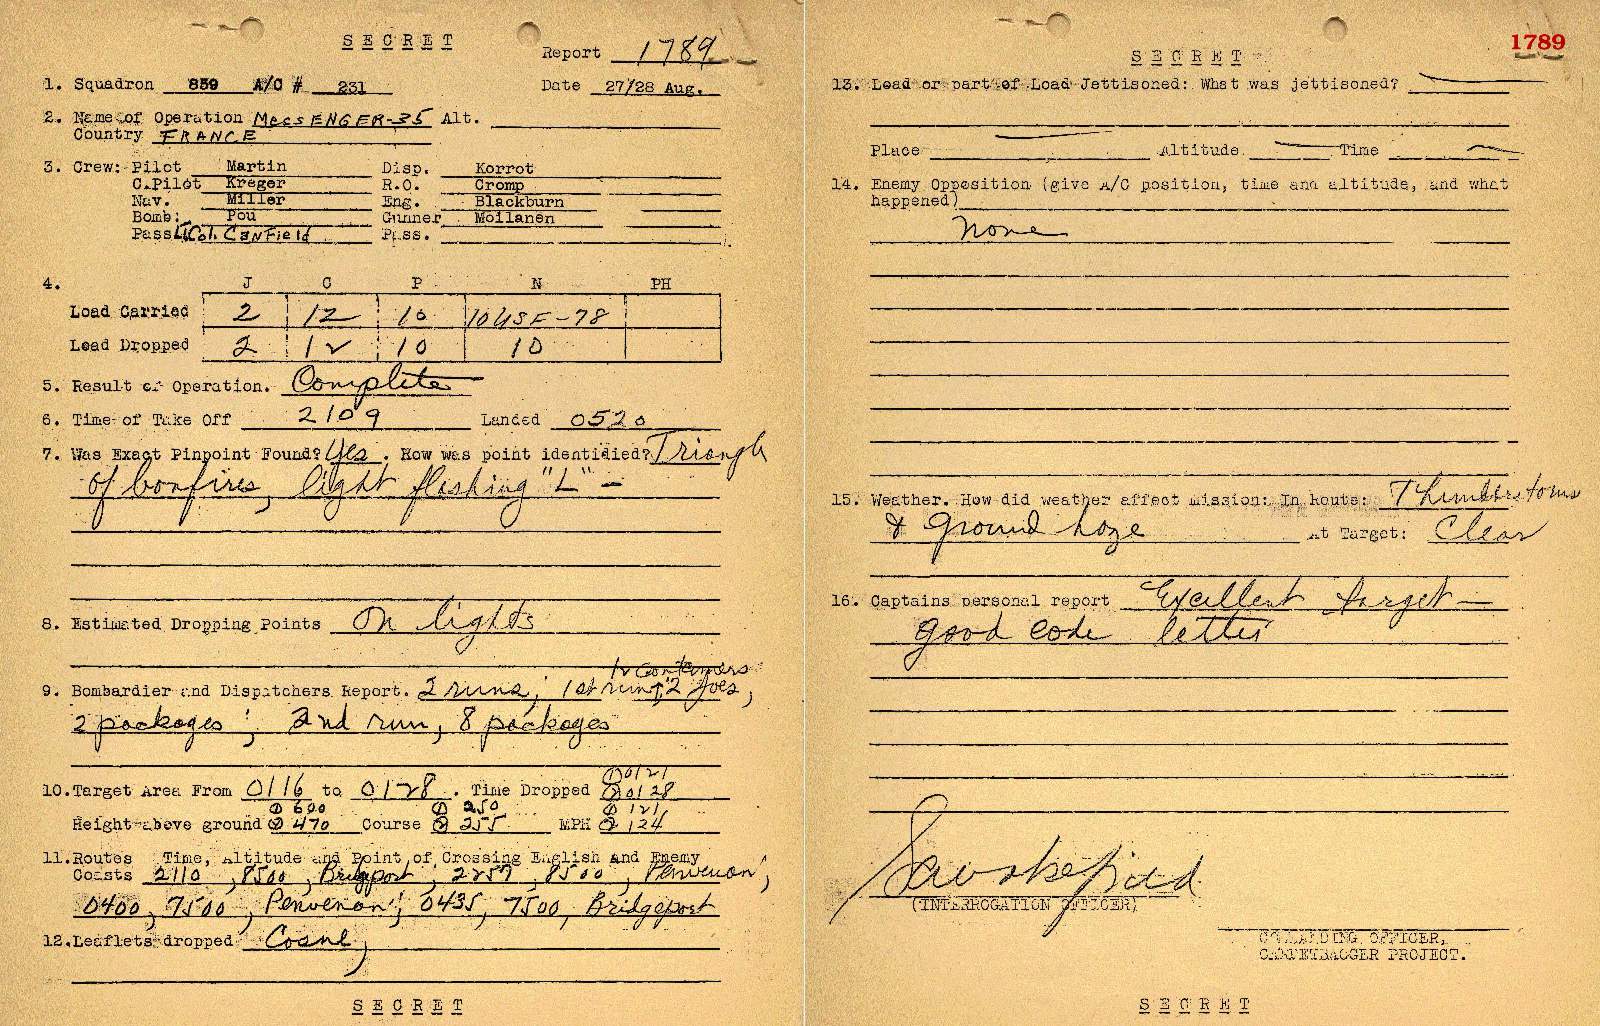 SECRET
Report 1789
1. Squadron 859 A/C # 231 Date 27/28 Aug.
2. Name of Operation MESSENGER-35 Alt.
Country FRANCE
3. Crew: Pilot Martin Disp. Korrot
C.Pilot Kreger R.O. Cromp
Nav. Miller Eng. Blackburn
Bomb: Pou Gunner Moilanen
Pass Lt.Col. Canfield Pass.
4. J C P N PH
Load Carried 2 12 10 10 USF-78
Load Dropped 2 12 10 10
5. Result of Operation. Complete
6. Time of Take Off 2109 Landed 0520
7. Was Exact Pinpoint Found? Yes. How was point identidied? Triangle
of bonfires, light flashing "L" -
8. Estimated Dropping Points On lights
12 containers
9. Bombardier and Dispatchers Report. 2 runs; 1st run, 2 Joes,
2 packages; 2nd run, 8 packages
① 0121
10. Target Area From 0116 to 0128. Time Dropped ② 0128
① 600 ① 250 ① 121
Height above ground ② 470 Course ② 255 MPH ② 124
11. Routes Time, Altitude and Point of Crossing English and Enemy
Coasts 2110, 8500, Bridgeport; 2257, 8500, Penvenon;
0400, 7500, Penvenon; 0435, 7500, Bridgeport
12. Leaflets dropped Cosne,
SECRET
1789
SECRET
13. Load or part of Load Jettisoned: What was jettisoned?
Place Altitude Time
14. Enemy Opposition (give A/C position, time and altitude, and what
happened)
None
15. Weather. How did weather affect mission: In Route: Thunderstorms
& ground haze At Target: Clear
16. Captains personal report Excellent target -
good code letter
(INTERROGATION OFFICER)
COMMANDING OFFICER,
CARPETBAGGER PROJECT.
SECRET